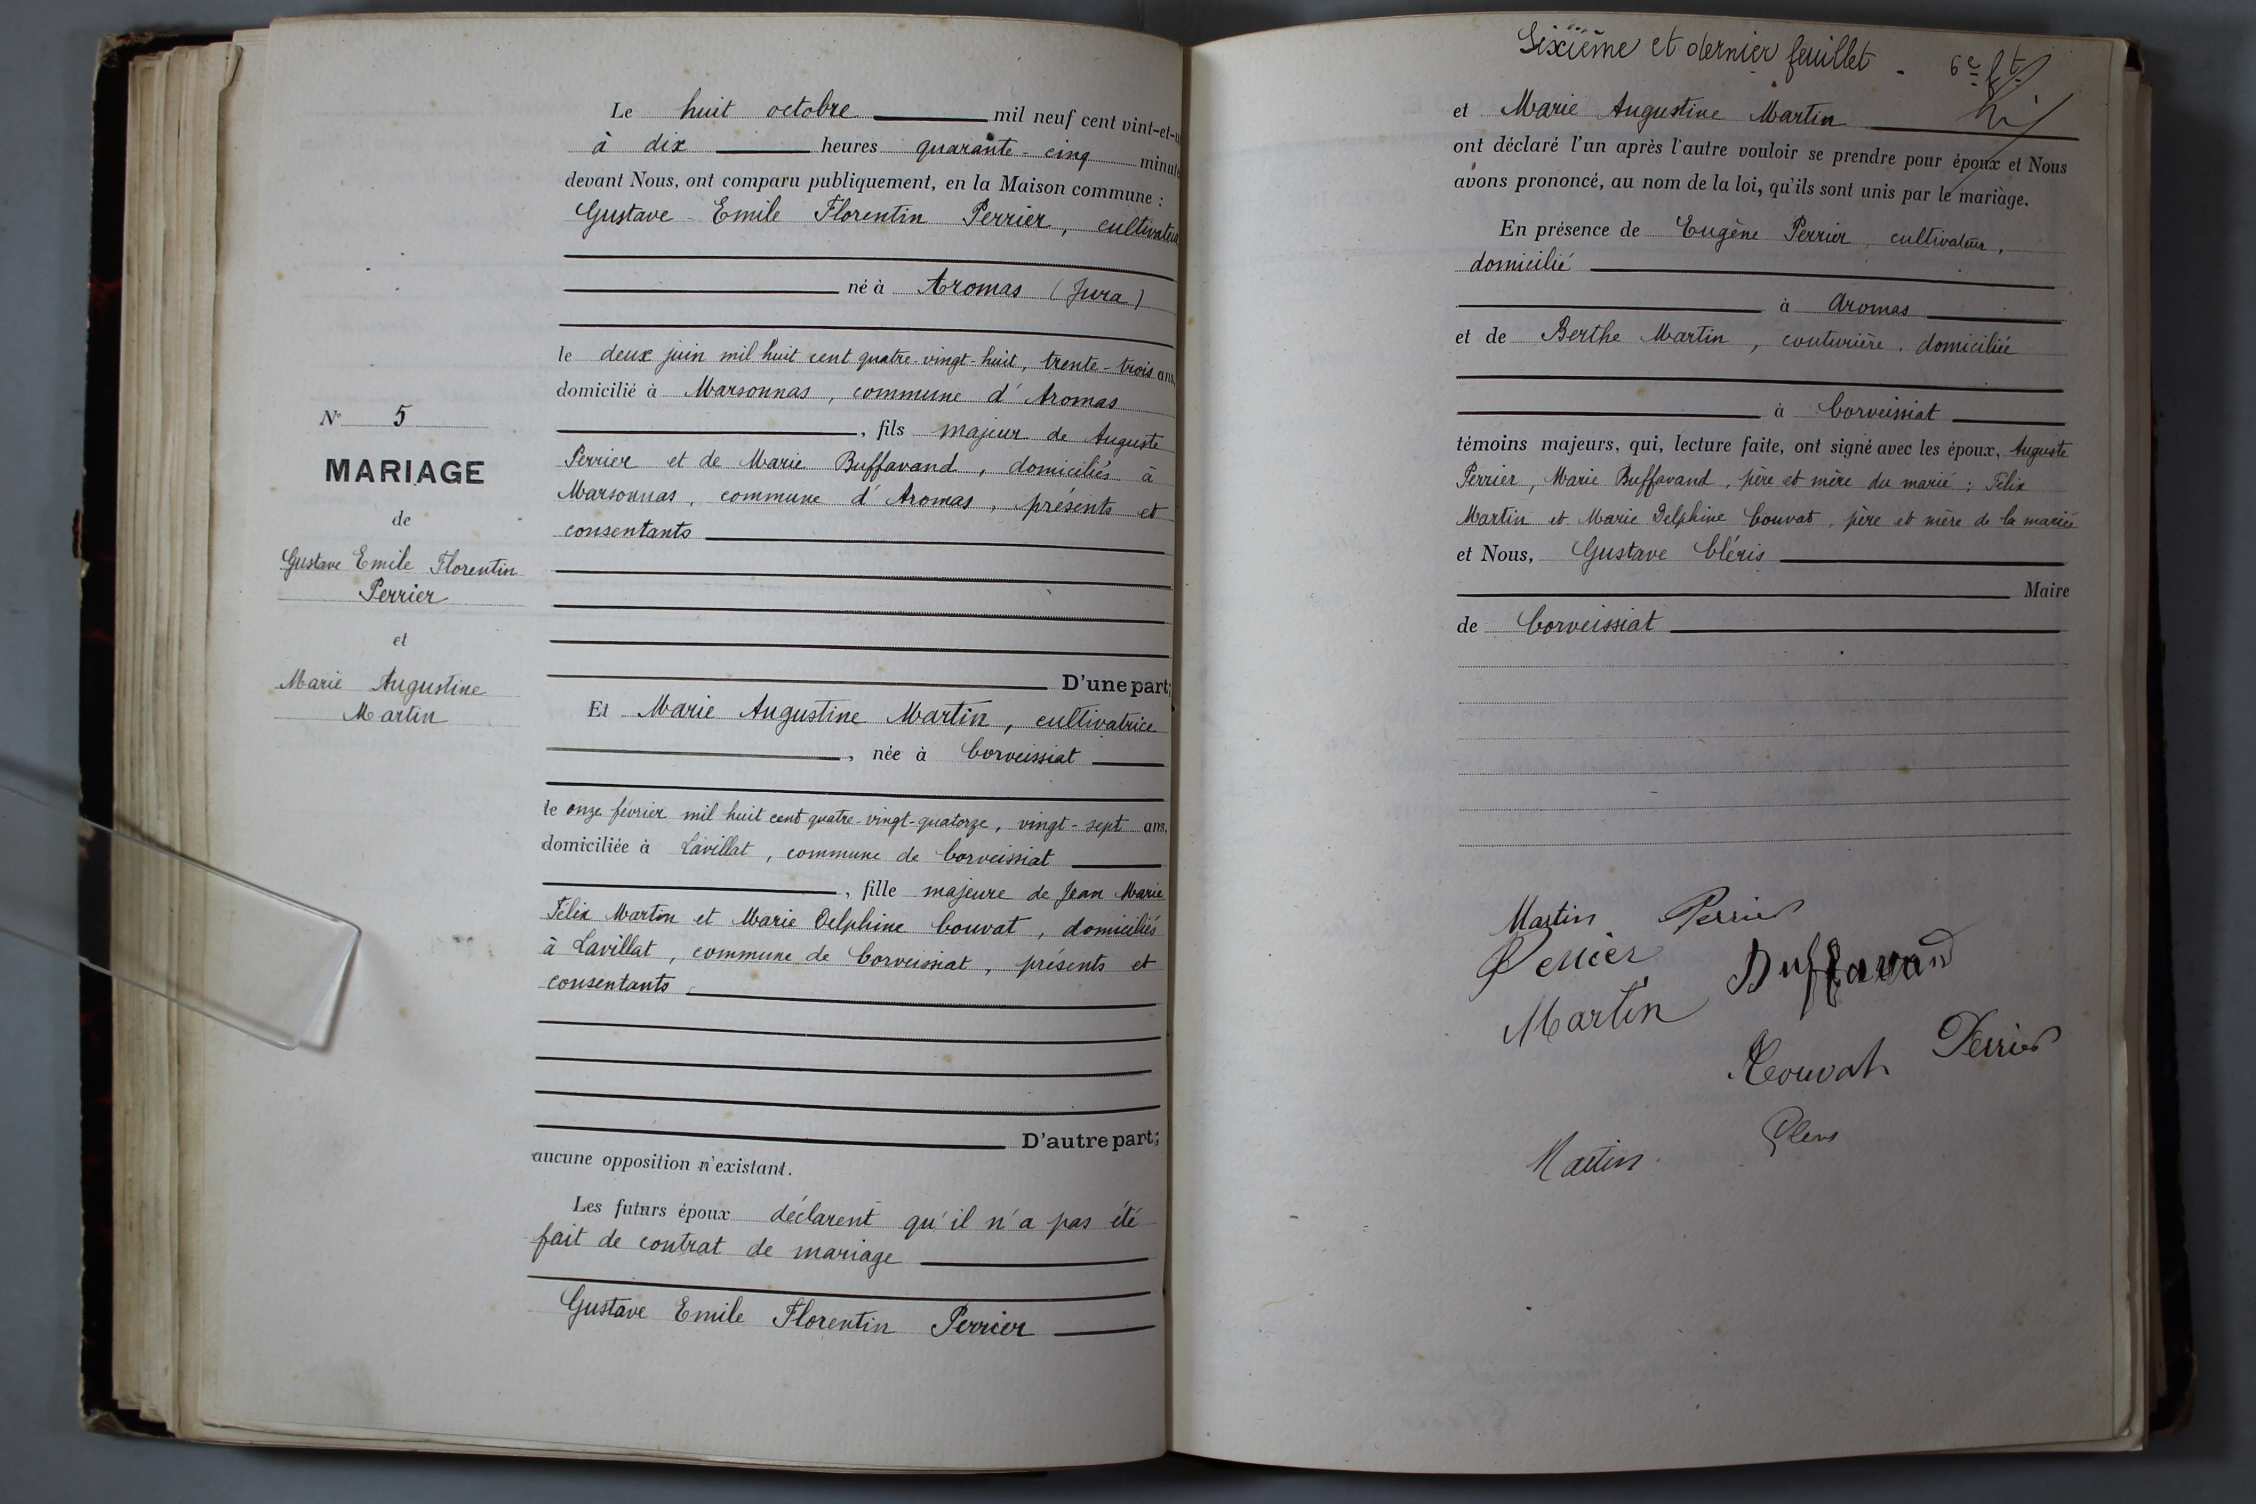 N° 5
MARIAGE
de
Gustave Emile Florentin
Perrier
et
Marie Augustine
Martin
Le huit octobre mil neuf cent vint-et-u
à dix heures quarante-cinq minute
devant Nous, ont comparu publiquement, en la Maison commune :
Gustave Emile Florentin Perrier, cultivateur
né à Aromas (Jura)
le deux juin mil huit cent quatre-vingt-huit, trente-trois ans,
domicilié à Marsonnas, commune d'Aromas
, fils majeur de Auguste
Perrier et de Marie Buffavand, domiciliés à
Marsonnas, commune d'Aromas, présents et
consentants
D'une part;
Et Marie Augustine Martin, cultivatrice
, née à Corveissiat
le onze février mil huit cent quatre-vingt-quatorze, vingt-sept ans,
domiciliée à Lavillat, commune de Corveissiat
, fille majeure de Jean Marie
Felix Martin et Marie Delphine Couvat, domiciliés
à Lavillat, commune de Corveissiat, présents et
consentants
D'autre part;
aucune opposition n'existant.
Les futurs époux déclarent qu'il n'a pas été
fait de contrat de mariage
Gustave Emile Florentin Perrier
Sixième et dernier feuillet. 6e ft.
et Marie Augustine Martin
ont déclaré l'un après l'autre vouloir se prendre pour époux et Nous
avons prononcé, au nom de la loi, qu'ils sont unis par le mariage.
En présence de Eugène Perrier, cultivateur,
domicilié
à Aromas
et de Berthe Martin, couturière, domiciliée
à Corveissiat
témoins majeurs, qui, lecture faite, ont signé avec les époux, Auguste
Perrier, Marie Buffavand, père et mère du marié ; Félix
Martin et Marie Delphine Couvat, père et mère de la mariée
et Nous, Gustave Cléris
Maire
de Corveissiat
Martin Perrier
Perrier Buffavand
Martin
Couvat Perrier
Martin